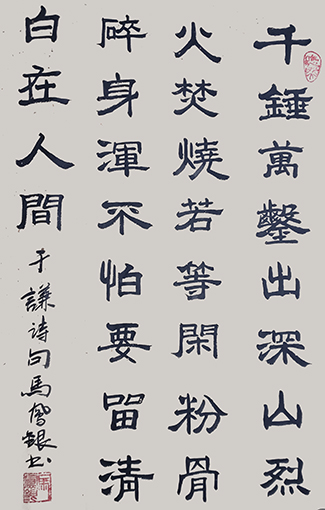 千錘萬鑿出深山烈
火焚燒若等閑粉骨
碎身渾不怕要留清
白在人間
于謙诗句馬銀书